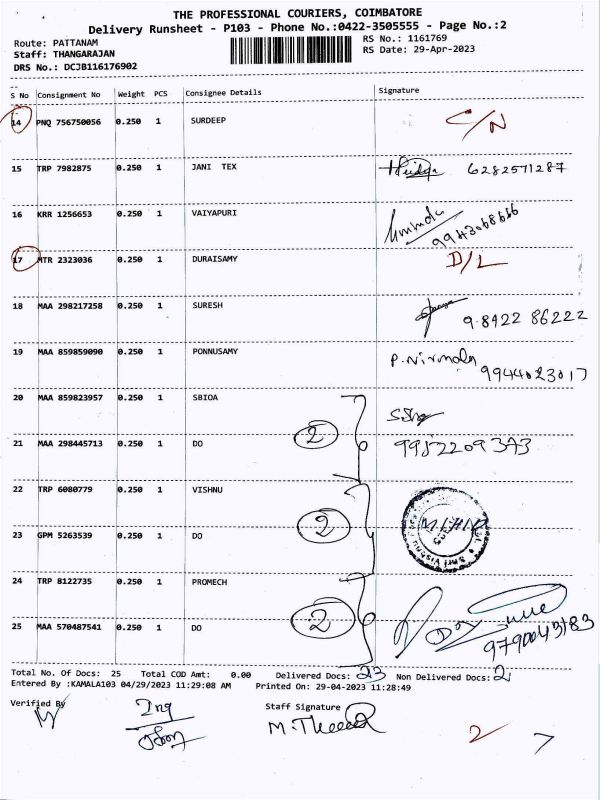 THE PROFESSIONAL COURIERS, COIMBATORE
Delivery Runsheet - P103 - Phone No.:0422-3505555 - Page No.:2
Route: PATTANAM
RS No.: 1161769
Staff: THANGARAJAN
RS Date: 29-Apr-2023
DRS No.: DCJB116176902
S No Consignment No Weight PCS Consignee Details Signature
14 PNQ 756750056 0.250 1 SURDEEP C/N
15 TRP 7982875 0.250 1 JANI TEX 6282571287
16 KRR 1256653 0.250 1 VAIYAPURI 9943068666
17 MTR 2323036 0.250 1 DURAISAMY D/L
18 MAA 298217258 0.250 1 SURESH 9.8422 86222
19 MAA 859859090 0.250 1 PONNUSAMY P. Nirmala
9944023017
20 MAA 859823957 0.250 1 SBIOA
21 MAA 298445713 0.250 1 DO 2 9952209373
22 TRP 6080779 0.250 1 VISHNU
23 GPM 5263539 0.250 1 DO 2
24 TRP 8122735 0.250 1 PROMECH
25 MAA 570487541 0.250 1 DO 2
Total No. Of Docs: 25 Total COD Amt: 0.00 Delivered Docs: 23 Non Delivered Docs: 2
Entered By :KAMALA103 04/29/2023 11:29:08 AM Printed On: 29-04-2023 11:28:49
Verified By
Staff Signature
2